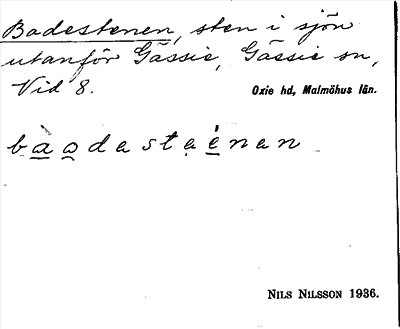 Badestenen, sten i sjön
utanför Gässie, Gässie sn,
Vid 8.
Oxie hd, Malmöhus län.
baodastaenan
NILS NILSSON 1936.